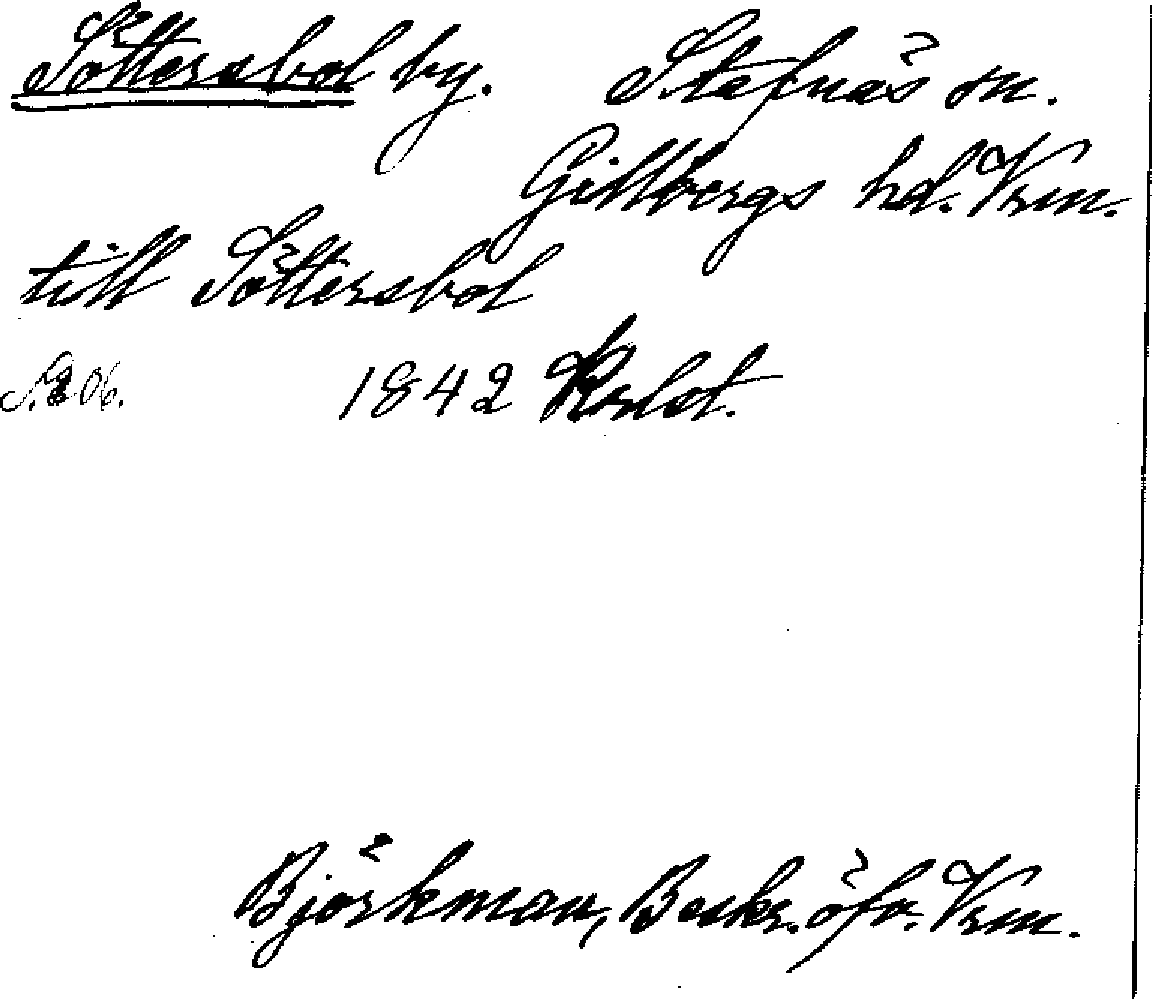 Söttersbol by. Stafnäs sn.
Gillbergs hd. Vrm.
till Söttersbol
1842
Björkman, Beskr. öfv. Vrm.